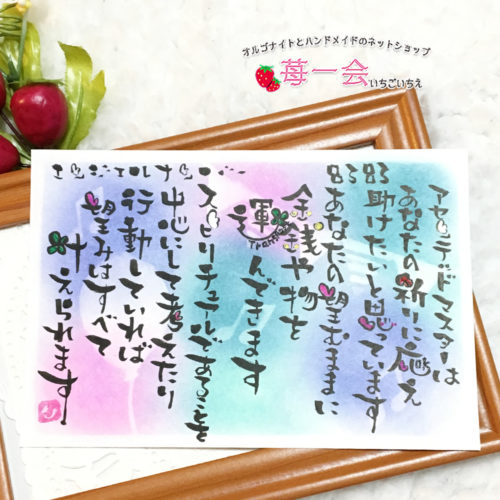 オルゴナイトとハンドメイドのネットショップ
苺一会
いちごいちえ
エンジェルナンバー
アセンデッドマスターは
あなたの祈りに応え
助けたいと思っています
あなたの望むままに
金銭や物を
運んできます
スピリチュアルであることを
中心にして考えたり
行動していれば
望みはすべて
叶えられます